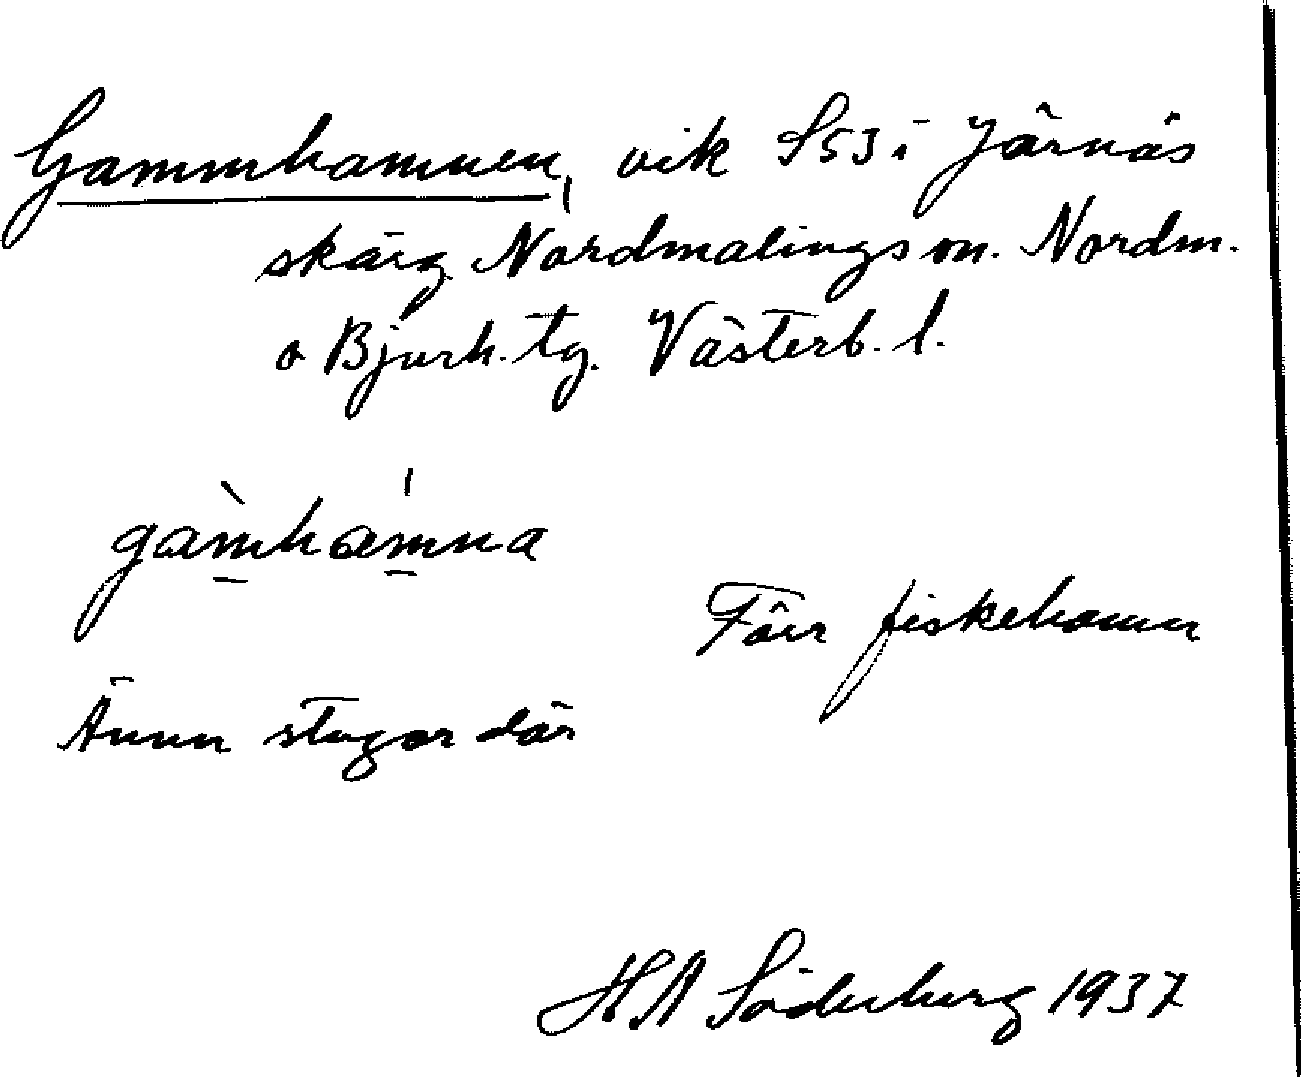 Gammhamnen, vik S53 i Järnäs
skärg Nordmalings sn. Nordm.
o Bjurh. tg. Västerb. l.
gàmhámna
Förr fiskehamn
Ännu stugor där
HA Söderberg 1937